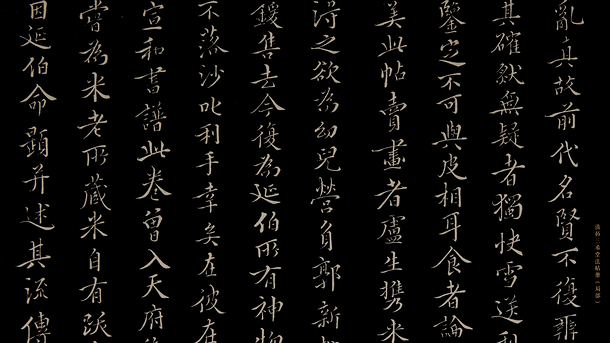 亂真故前代名賢不復
其確然無疑者獨快雪送
鑒定不可與皮相耳食者論
美此帖賣畫者盧生攜米
得之欲為幼兒營負郭新
鍰售去今復為延伯所有神物
不落沙叱利手幸矣在彼在
宣和書譜此卷曾入天府
嘗為米老所藏米自有跋
因延伯命題并述其流傳
清拓三希堂法帖册（局部）